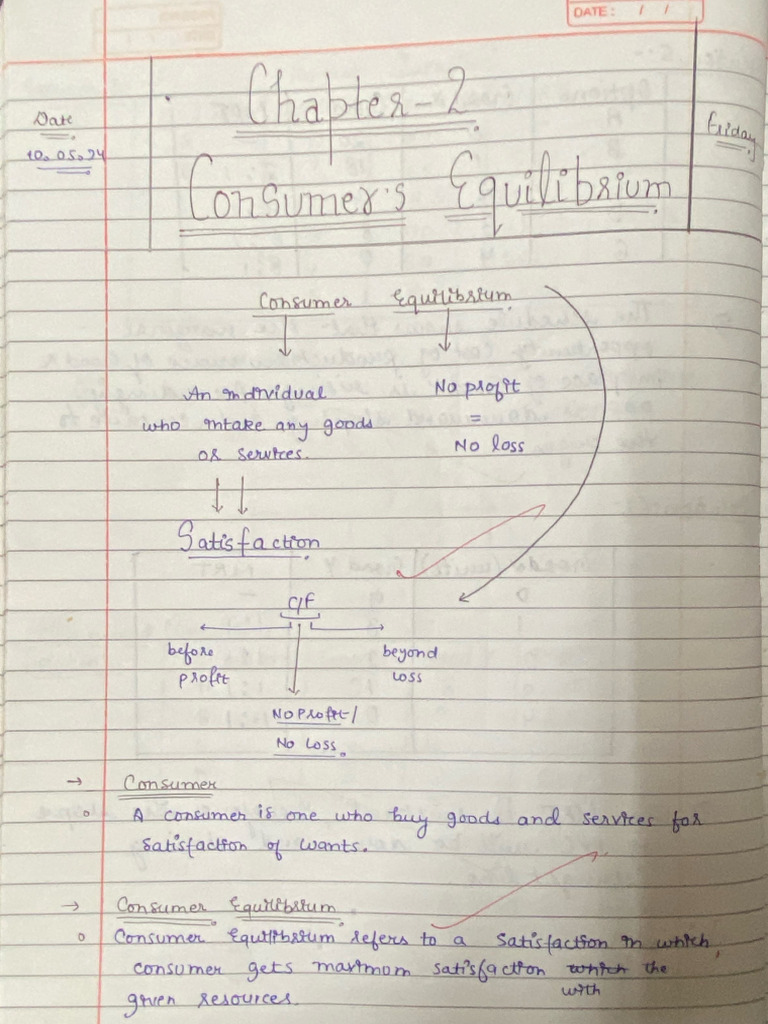 DATE: / /
Chapter-2
Date
10.05.24
Friday
Consumer's Equilibrium
Consumer Equilibrium
An individual No profit
who intake any goods =
or services. No loss
Satisfaction
C/F
before beyond
profit loss
No Profit/
No Loss.
→ Consumer
A consumer is one who buy goods and services for
satisfaction of wants.
→ Consumer Equilibrium
Consumer Equilibrium refers to a satisfaction in which,
consumer gets maximom satisfaction which the
with
given resources.